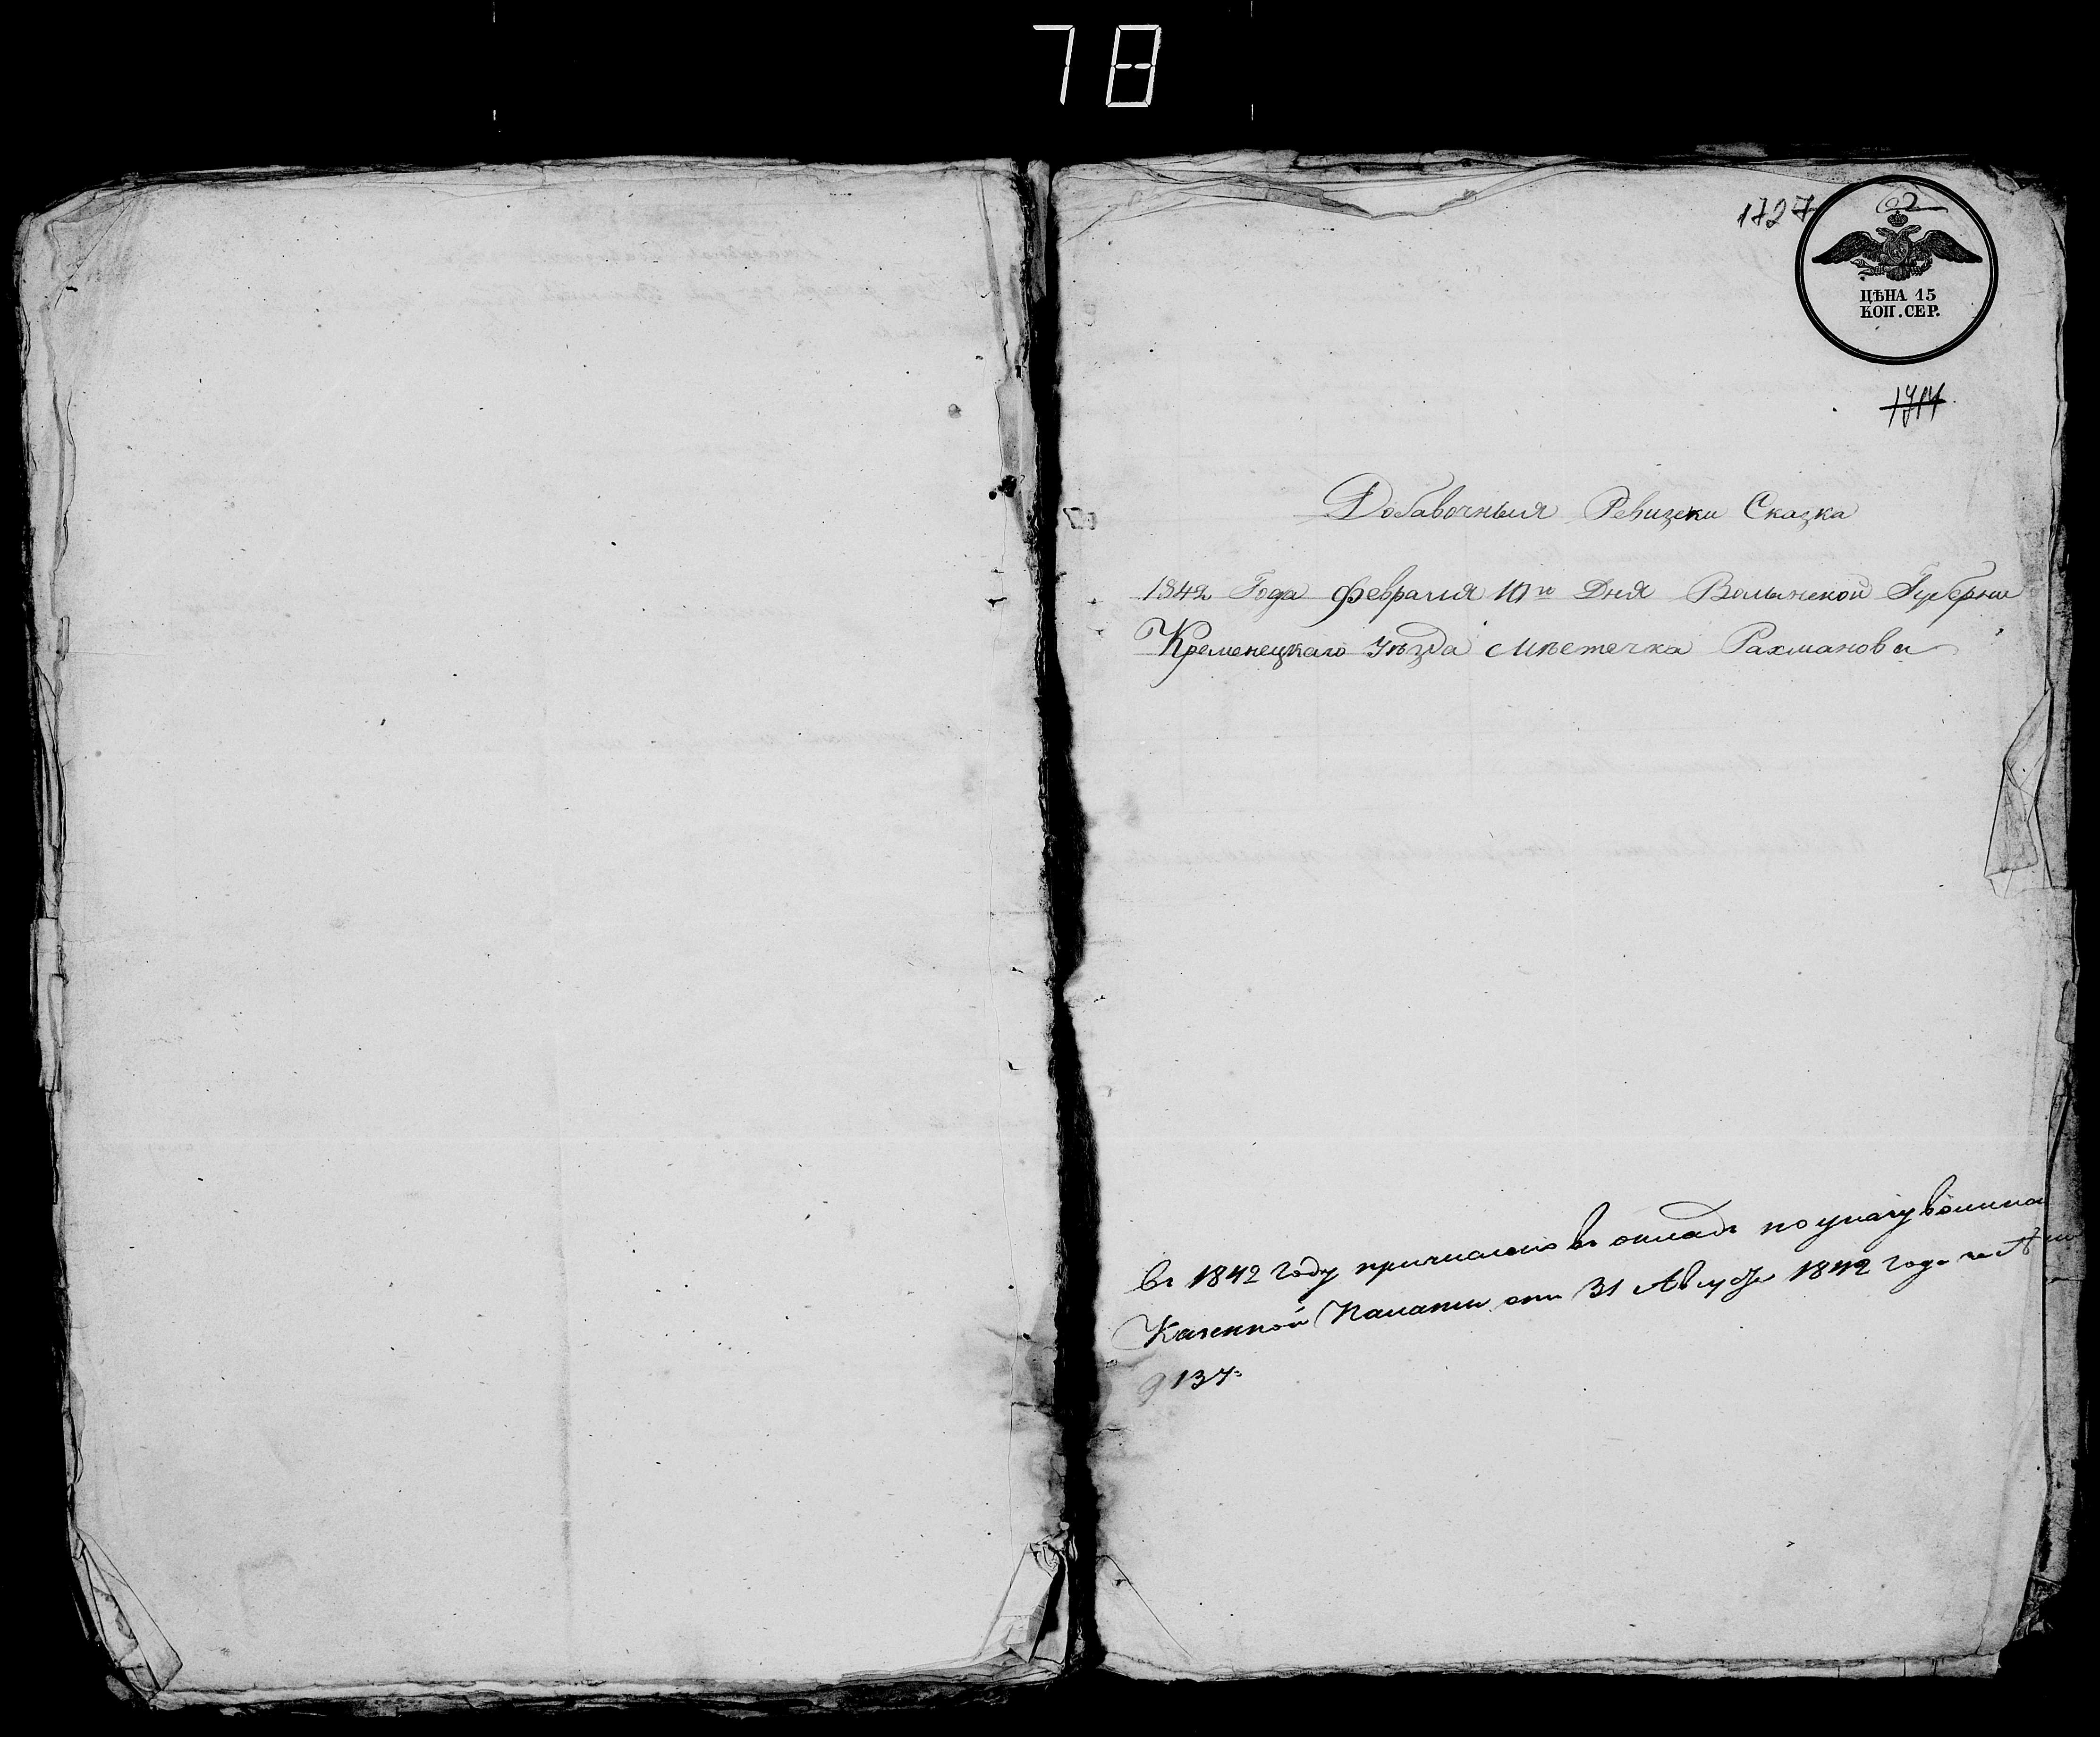 78
1727
62
ЦѢНА 15
КОП. СЕР.
1717
Добавочныя Ревизски Сказка
1842 Года февраля 10го Дня Волынской Губерни
Кременецкаго Уѣзда Мѣстечка Рахманова
въ 1842 году причислено въ окладъ по указу волынской
Казенной Палаты отъ 31 Августа 1842 года за №
9137